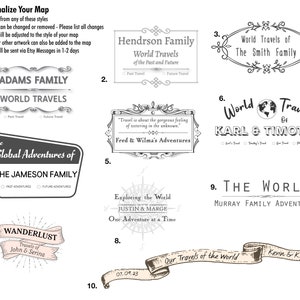 nalize Your Map
from any of these styles
can be changed or removed - Please list all changes
will be adjusted to the style of your map
other artwork can also be added to the map
will be sent via Etsy Messages in 1-2 days
ADAMS FAMILY
WORLD TRAVELS
2.
Hendrson Family
World Travels
of the Past and Future
Past Travel
Future Travel
3.
World Travels of
The Smith Family
Global Adventures of
THE JAMESON FAMILY
PAST ADVENTURES
FUTURE ADVENTURES
"Travel is about the gorgeous feeling
of teetering in the unknown."
Fred & Wilma's Adventures
5.
6.
World Travels
Of
KARL & TIMO
WANDERLUST
Travels of
John & Serina
Exploring the World
JUSTIN & MARGE
One Adventure at a Time
8.
9.
THE WORL
MURRAY FAMILY ADVEN
10.
07.09.23
Our Travels of the World
Kevin & K